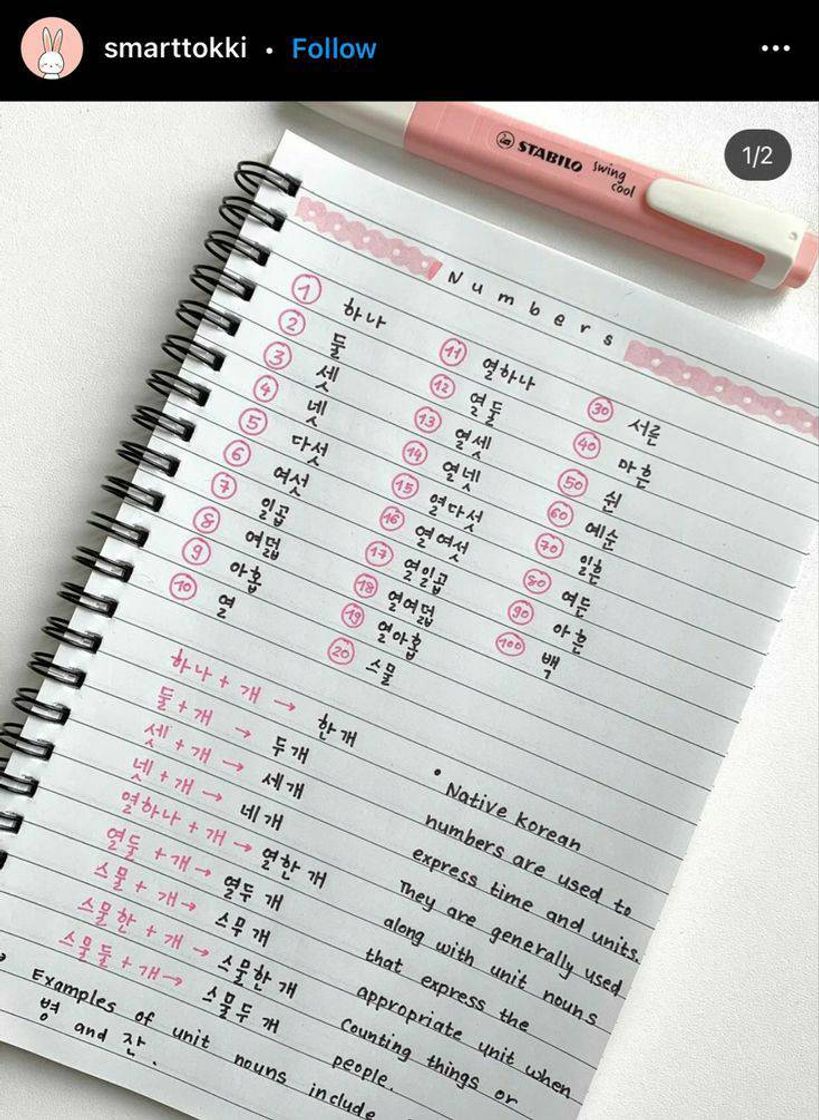 smarttokki • Follow
1/2
STABILO swing cool
Numbers
1 하나
2 둘
3 셋
4 넷
5 다섯
6 여섯
7 일곱
8 여덟
9 아홉
10 열
11 열하나
12 열둘
13 열셋
14 열넷
15 열다섯
16 열여섯
17 열일곱
18 열여덟
19 열아홉
20 스물
30 서른
40 마흔
50 쉰
60 예순
70 일흔
80 여든
90 아흔
100 백
하나 + 개 → 한 개
둘 + 개 → 두 개
셋 + 개 → 세 개
넷 + 개 → 네 개
열하나 + 개 → 열한 개
열둘 + 개 → 열두 개
스물 + 개 → 스무 개
스물한 + 개 → 스물한 개
스물둘 + 개 → 스물두 개
• Native Korean
numbers are used to
express time and units.
They are generally used
along with unit nouns
that express the
appropriate unit when
counting things or
people.
Examples of unit nouns include
병 and 잔.